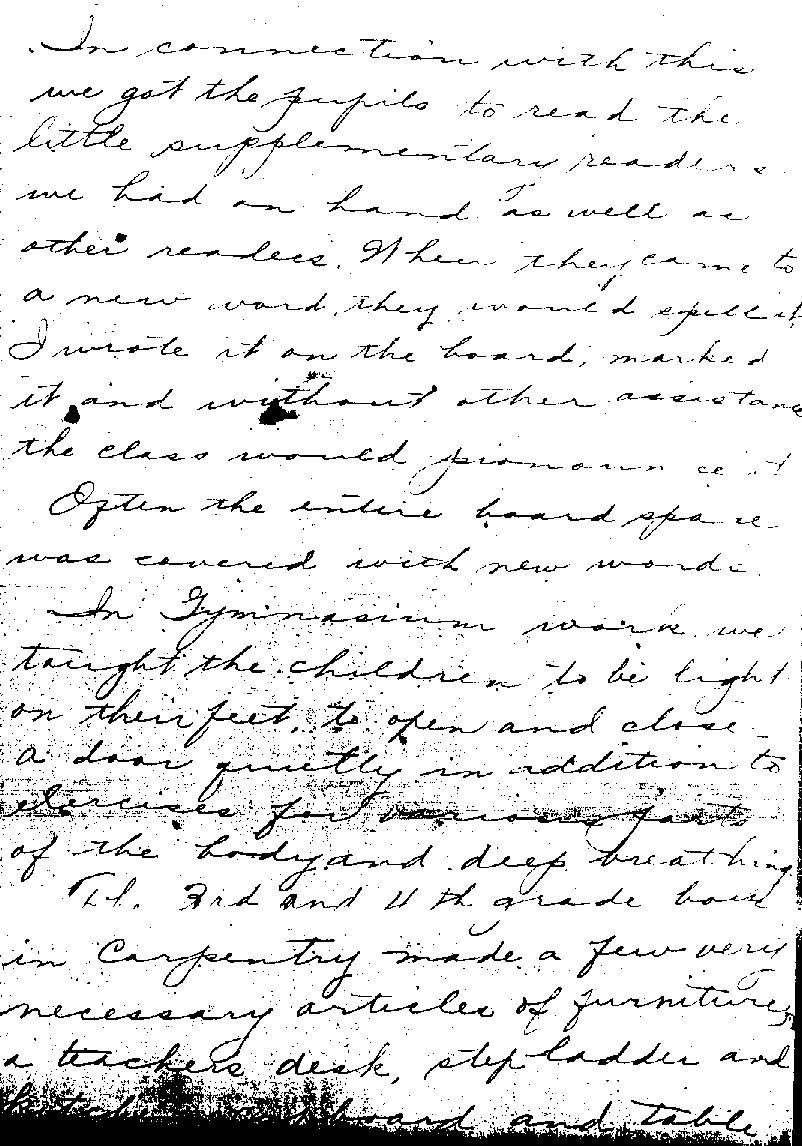 In connection with this
we got the pupils to read the
little supplementary readers
we had on hand as well as
other readers. When they came to
a new word they would spell it
I wrote it on the board, marked
it and without other assistance
the class would pronounce it
Often the entire board space
was covered with new words
In Gymnasium work we
taught the children to be light
on their feet, to open and close
a door quietly in addition to
exercises for various parts
of the body and deep breathing
The 3rd and 4th grade boys
in Carpentry made a few very
necessary articles of furniture,
a teachers desk, step ladder and
kitchen cupboard and table